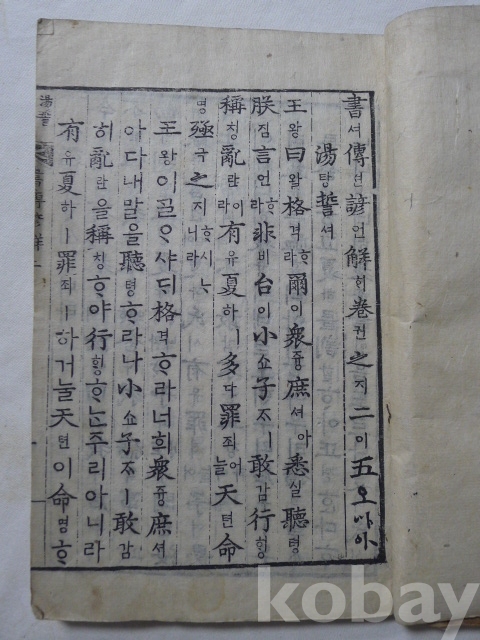 書셔傳뎐諺언解ᄒᆡ卷권之지二이五오
湯탕誓셔
王왕曰왈格격ᄒᆞ라爾이衆즁庶셔아悉실聽텽
朕짐言언ᄒᆞ라非비台이小쇼子ᄌᆞㅣ敢감行ᄒᆡᆼ
稱칭亂란이라有유夏하ㅣ多다罪죄어늘天텬命
명殛극之지ᄒᆞ시ᄂᆞ니라
王왕이ᄀᆞᆯᄋᆞ샤ᄃᆡ格격ᄒᆞ라너희衆즁庶셔
아다내말을聽텽ᄒᆞ라나小쇼子ᄌᆞㅣ敢감
히亂란을稱칭ᄒᆞ야行ᄒᆡᆼᄒᆞᄂᆞᆫ주리아니라
有유夏하ㅣ罪죄ㅣ하거늘天텬이命명ᄒᆞ
湯誓
kobay